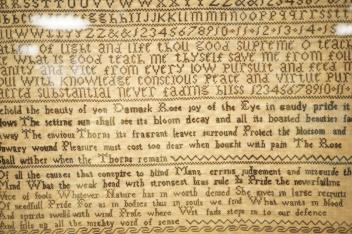 RSSTTUUVVWWXXYYZZ&&12345678
gghhiIJJKKllmmnnooppqqrrs
uuwwYYZZ&&1·2·3·4·5·6·7·8·9·10·11·12·13·14·15
of light and life thou good supreme o teach
What is good teach me thyself save me from foll
vanity and vice from every low pursuit and feed m
soul with knowledge conscious peace and virtue pur
sacred substantial never fading bliss 1234567891011
behold the beauty of yon Damask Rose joy of the Eye in gaudy pride it
blows The setting sun shall see its bloom decay and all its boasted beauties fa
away The envious Thorns its fragrant leaver surround Protect the blossom and
unwary wound Pleasure must cost too dear when bought with pain The Rose
shall wither when the Thorns remain
Of all the causes that conspire to blind Mans erring judgement and misguide th
Mind What the weak head with strongest bias rule Is Pride the neverfailing
vice of fools Whatever Nature has in worth denied She gives in large recruits
of needfull Pride For as in bodies thus in souls we find What wants in blood
and spirits swelld with wind Pride where Wit fails steps in to our defence
And fills up all the mighty void of sense